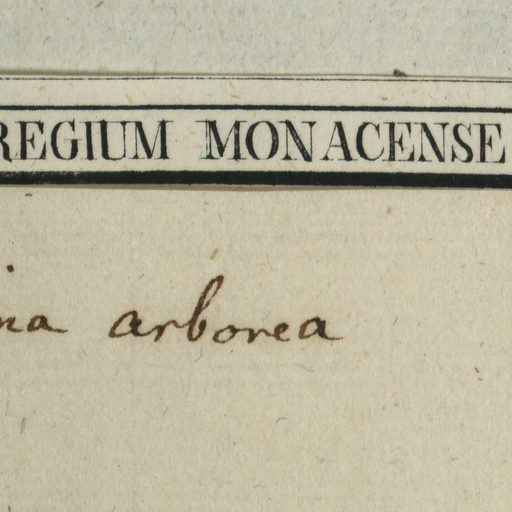 REGIUM MONACENSE
ina arborea